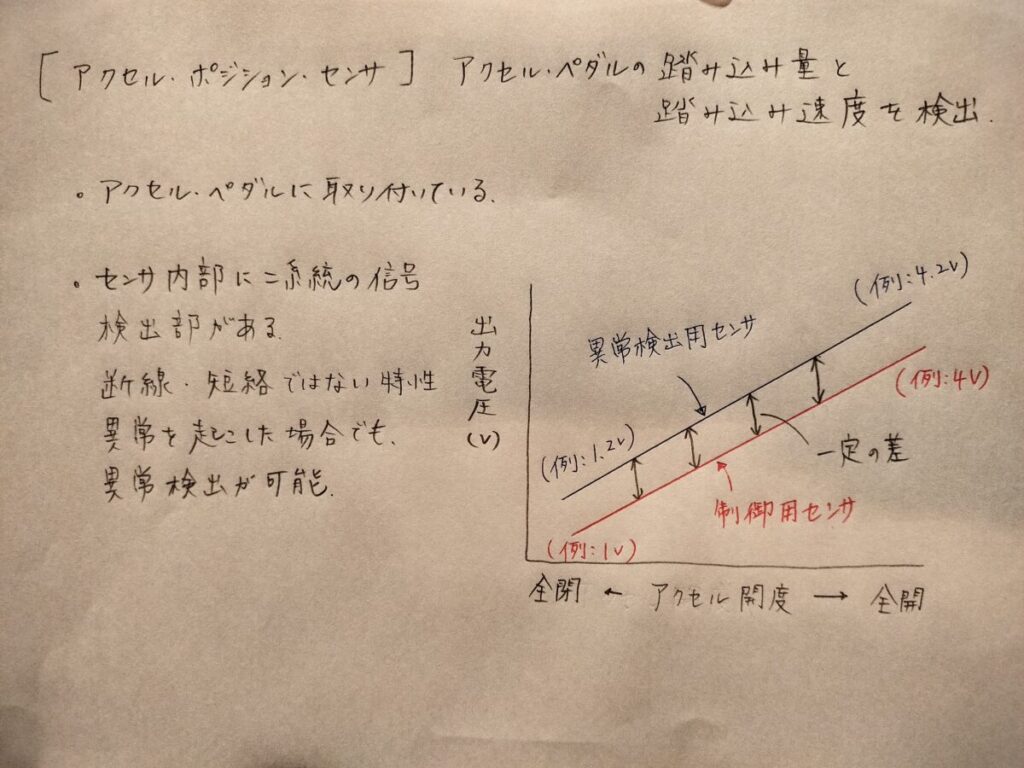 [アクセル・ポジション・センサ] アクセル・ペダルの踏み込み量と
踏み込み速度を検出.
。アクセル・ペダルに取り付いている.
。センサ内部に二系統の信号
検出部がある.
断線・短絡ではない特性
異常を起こした場合でも、
異常検出が可能.
出力電圧(V)
(例:4.2V)
異常検出用センサ
(例:4V)
(例:1.2V)
一定の差
制御用センサ
(例:1V)
全閉 ← アクセル開度 → 全開